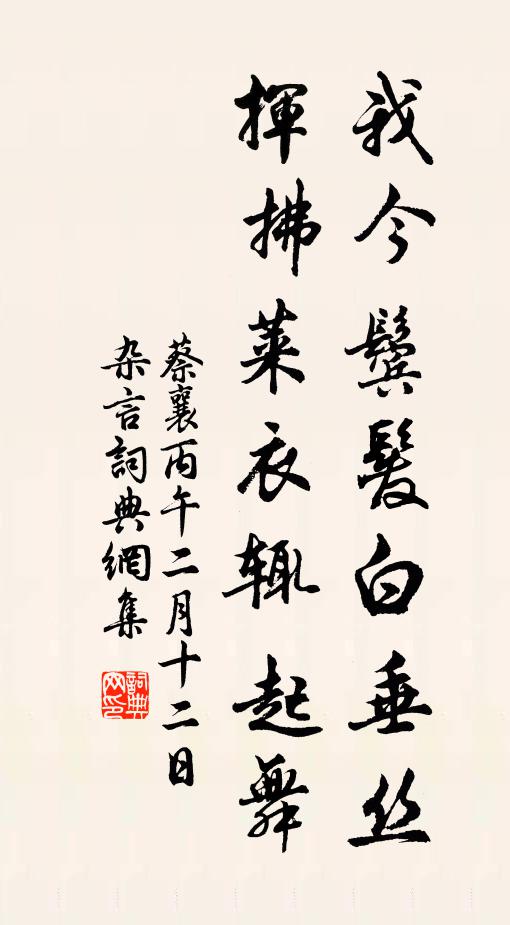 我今鬓髮白垂丝
揮拂菜衣辄起舞
蔡襄丙午二月十二日
杂言詞典網集
詞典网印